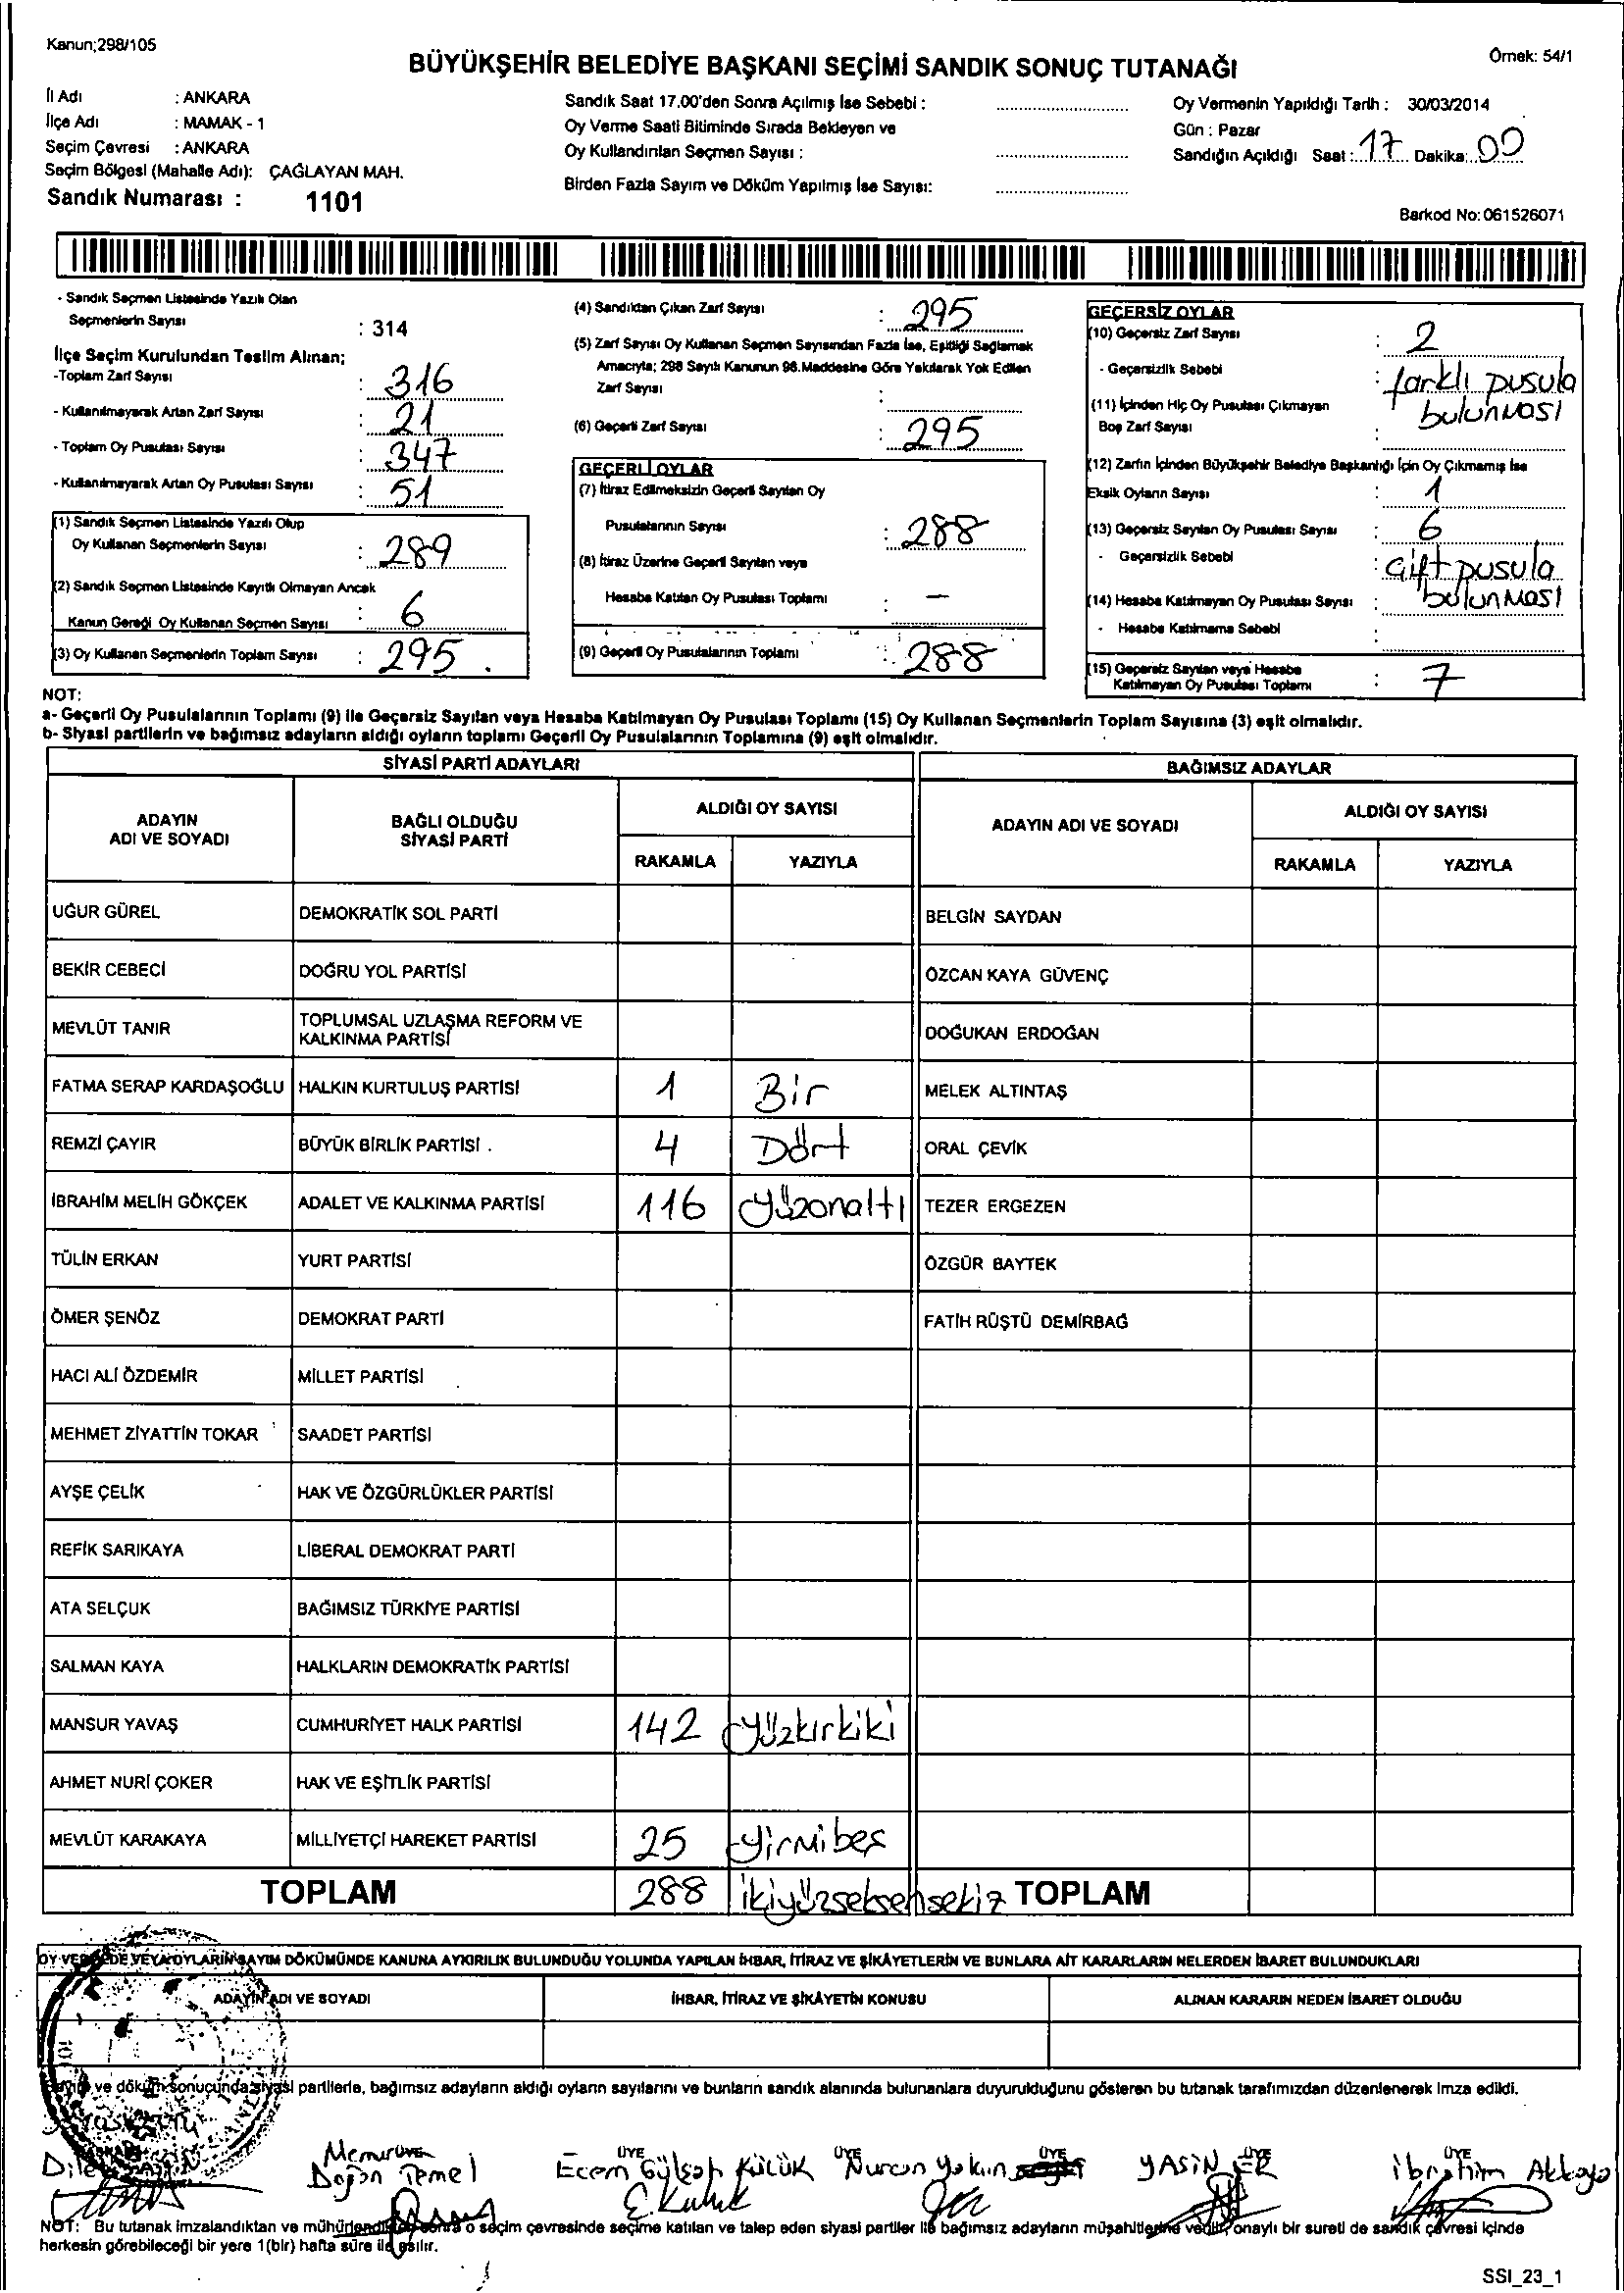 Kanun;298/105
Örnek: 54/1
BÜYÜKŞEHİR BELEDİYE BAŞKANI SEÇİMİ SANDIK SONUÇ TUTANAĞI
İl Adı : ANKARA
İlçe Adı : MAMAK - 1
Seçim Çevresi : ANKARA
Seçim Bölgesi (Mahalle Adı): ÇAĞLAYAN MAH.
Sandık Numarası : 1101
Sandık Saat 17.00'den Sonra Açılmış İse Sebebi :
Oy Verme Saati Bitiminde Sırada Bekleyen ve
Oy Kullandırılan Seçmen Sayısı :
Birden Fazla Sayım ve Döküm Yapılmış İse Sayısı:
Oy Vermenin Yapıldığı Tarih : 30/03/2014
Gün : Pazar
Sandığın Açıldığı Saat : 17 Dakika: 00
Barkod No: 061526071
- Sandık Seçmen Listesinde Yazılı Olan
Seçmenlerin Sayısı : 314
İlçe Seçim Kurulundan Teslim Alınan;
-Toplam Zarf Sayısı : 316
- Kullanılmayarak Artan Zarf Sayısı : 21
- Toplam Oy Pusulası Sayısı : 347
- Kullanılmayarak Artan Oy Pusulası Sayısı : 51
(1) Sandık Seçmen Listesinde Yazılı Olup
Oy Kullanan Seçmenlerin Sayısı : 289
(2) Sandık Seçmen Listesinde Kayıtlı Olmayan Ancak
Kanun Gereği Oy Kullanan Seçmen Sayısı : 6
(3) Oy Kullanan Seçmenlerin Toplam Sayısı : 295
(4) Sandıktan Çıkan Zarf Sayısı : 295
(5) Zarf Sayısı Oy Kullanan Seçmen Sayısından Fazla İse, Eşitliği Sağlamak
Amacıyla; 298 Sayılı Kanunun 98.Maddesine Göre Yakılarak Yok Edilen
Zarf Sayısı :
(6) Geçerli Zarf Sayısı : 295
GEÇERLİ OYLAR
(7) İtiraz Edilmeksizin Geçerli Sayılan Oy
Pusulalarının Sayısı : 288
(8) İtiraz Üzerine Geçerli Sayılan veya
Hesaba Katılan Oy Pusulası Toplamı : -
(9) Geçerli Oy Pusulalarının Toplamı : 288
GEÇERSİZ OYLAR
(10) Geçersiz Zarf Sayısı : 2
- Geçersizlik Sebebi : farklı pusula
bulunması
(11) İçinden Hiç Oy Pusulası Çıkmayan
Boş Zarf Sayısı :
(12) Zarfın İçinden Büyükşehir Belediye Başkanlığı İçin Oy Çıkmamış İse
Eksik Oyların Sayısı : 1
(13) Geçersiz Sayılan Oy Pusulası Sayısı : 6
- Geçersizlik Sebebi : Çift pusula
bulunması
(14) Hesaba Katılmayan Oy Pusulası Sayısı :
- Hesaba Katılmama Sebebi :
(15) Geçersiz Sayılan veya Hesaba
Katılmayan Oy Pusulası Toplamı : 7
NOT:
a- Geçerli Oy Pusulalarının Toplamı (9) ile Geçersiz Sayılan veya Hesaba Katılmayan Oy Pusulası Toplamı (15) Oy Kullanan Seçmenlerin Toplam Sayısına (3) eşit olmalıdır.
b- Siyasi partilerin ve bağımsız adayların aldığı oyların toplamı Geçerli Oy Pusulalarının Toplamına (9) eşit olmalıdır.
SİYASİ PARTİ ADAYLARI
BAĞIMSIZ ADAYLAR
ADAYIN
ADI VE SOYADI
BAĞLI OLDUĞU
SİYASİ PARTİ
ALDIĞI OY SAYISI
RAKAMLA YAZIYLA
ADAYIN ADI VE SOYADI
ALDIĞI OY SAYISI
RAKAMLA YAZIYLA
UĞUR GÜREL DEMOKRATİK SOL PARTİ BELGİN SAYDAN
BEKİR CEBECİ DOĞRU YOL PARTİSİ ÖZCAN KAYA GÜVENÇ
MEVLÜT TANIR TOPLUMSAL UZLAŞMA REFORM VE
KALKINMA PARTİSİ DOĞUKAN ERDOĞAN
FATMA SERAP KARDAŞOĞLU HALKIN KURTULUŞ PARTİSİ 1 Bir MELEK ALTINTAŞ
REMZİ ÇAYIR BÜYÜK BİRLİK PARTİSİ . 4 Dört ORAL ÇEVİK
İBRAHİM MELİH GÖKÇEK ADALET VE KALKINMA PARTİSİ 116 yüzonaltı TEZER ERGEZEN
TÜLİN ERKAN YURT PARTİSİ ÖZGÜR BAYTEK
ÖMER ŞENÖZ DEMOKRAT PARTİ FATİH RÜŞTÜ DEMİRBAĞ
HACI ALİ ÖZDEMİR MİLLET PARTİSİ
MEHMET ZİYATTİN TOKAR SAADET PARTİSİ
AYŞE ÇELİK HAK VE ÖZGÜRLÜKLER PARTİSİ
REFİK SARIKAYA LİBERAL DEMOKRAT PARTİ
ATA SELÇUK BAĞIMSIZ TÜRKİYE PARTİSİ
SALMAN KAYA HALKLARIN DEMOKRATİK PARTİSİ
MANSUR YAVAŞ CUMHURİYET HALK PARTİSİ 142 yüzkırkiki
AHMET NURİ ÇOKER HAK VE EŞİTLİK PARTİSİ
MEVLÜT KARAKAYA MİLLİYETÇİ HAREKET PARTİSİ 25 yirmibeş
TOPLAM 288 ikiyüzseksensekiz TOPLAM
OY VERMEDE VEYA OYLARIN SAYIM DÖKÜMÜNDE KANUNA AYKIRILIK BULUNDUĞU YOLUNDA YAPILAN İHBAR, İTİRAZ VE ŞİKÂYETLERİN VE BUNLARA AİT KARARLARIN NELERDEN İBARET BULUNDUKLARI
ADAYIN ADI VE SOYADI İHBAR, İTİRAZ VE ŞİKÂYETİN KONUSU ALINAN KARARIN NEDEN İBARET OLDUĞU
Sayım ve döküm sonucunda siyasi partilerle, bağımsız adayların aldığı oyların sayılarını ve bunların sandık alanında bulunanlara duyurulduğunu gösteren bu tutanak tarafımızdan düzenlenerek imza edildi.
Memur ÜYE ÜYE ÜYE ÜYE ÜYE ÜYE
Doğan Temel Ecem Gülşah Küçük Nurcan Yakın YASİN ER İbrahim Akkaya
E.Küçük
NOT: Bu tutanak imzalandıktan ve mühürlendikten sonra o seçim çevresinde seçime katılan ve talep eden siyasi partiler ile bağımsız adayların müşahitlerine verilir, onaylı bir sureti de sandık çevresi içinde
herkesin görebileceği bir yere 1(bir) hafta süre ile asılır.
SSI_23_1